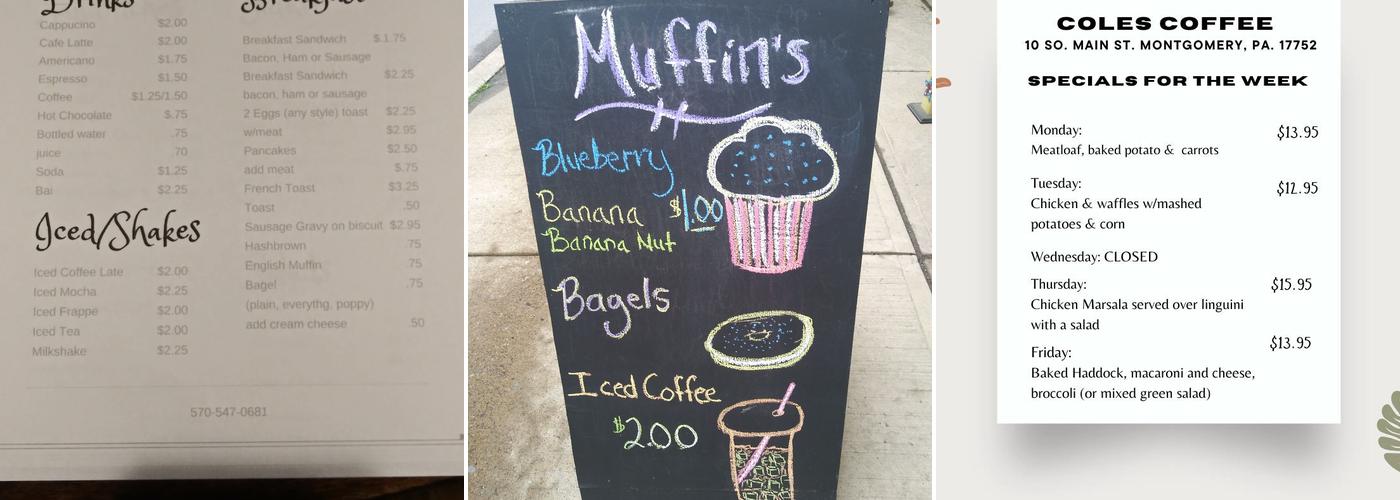 Drinks
Cappucino $2.00
Cafe Latte $2.00
Americano $1.75
Espresso $1.50
Coffee $1.25/1.50
Hot Chocolate $.75
Bottled water .75
juice .70
Soda $1.25
Bai $2.25
Iced/Shakes
Iced Coffee Late $2.00
Iced Mocha $2.25
Iced Frappe $2.00
Iced Tea $2.00
Milkshake $2.25
Breakfast
Breakfast Sandwich $1.75
Bacon, Ham or Sausage
Breakfast Sandwich $2.25
bacon, ham or sausage
2 Eggs (any style) toast $2.25
w/meat $2.95
Pancakes $2.50
add meat $.75
French Toast $3.25
Toast .50
Sausage Gravy on biscuit $2.95
Hashbrown .75
English Muffin .75
Bagel .75
(plain, everythg, poppy)
add cream cheese .50
570-547-0681
Muffin's
Blueberry
Banana $1.00
Banana Nut
Bagels
Iced Coffee
$2.00
COLES COFFEE
10 SO. MAIN ST. MONTGOMERY, PA. 17752
SPECIALS FOR THE WEEK
Monday: $13.95
Meatloaf, baked potato & carrots
Tuesday: $12.95
Chicken & waffles w/mashed
potatoes & corn
Wednesday: CLOSED
Thursday: $15.95
Chicken Marsala served over linguini
with a salad
Friday: $13.95
Baked Haddock, macaroni and cheese,
broccoli (or mixed green salad)